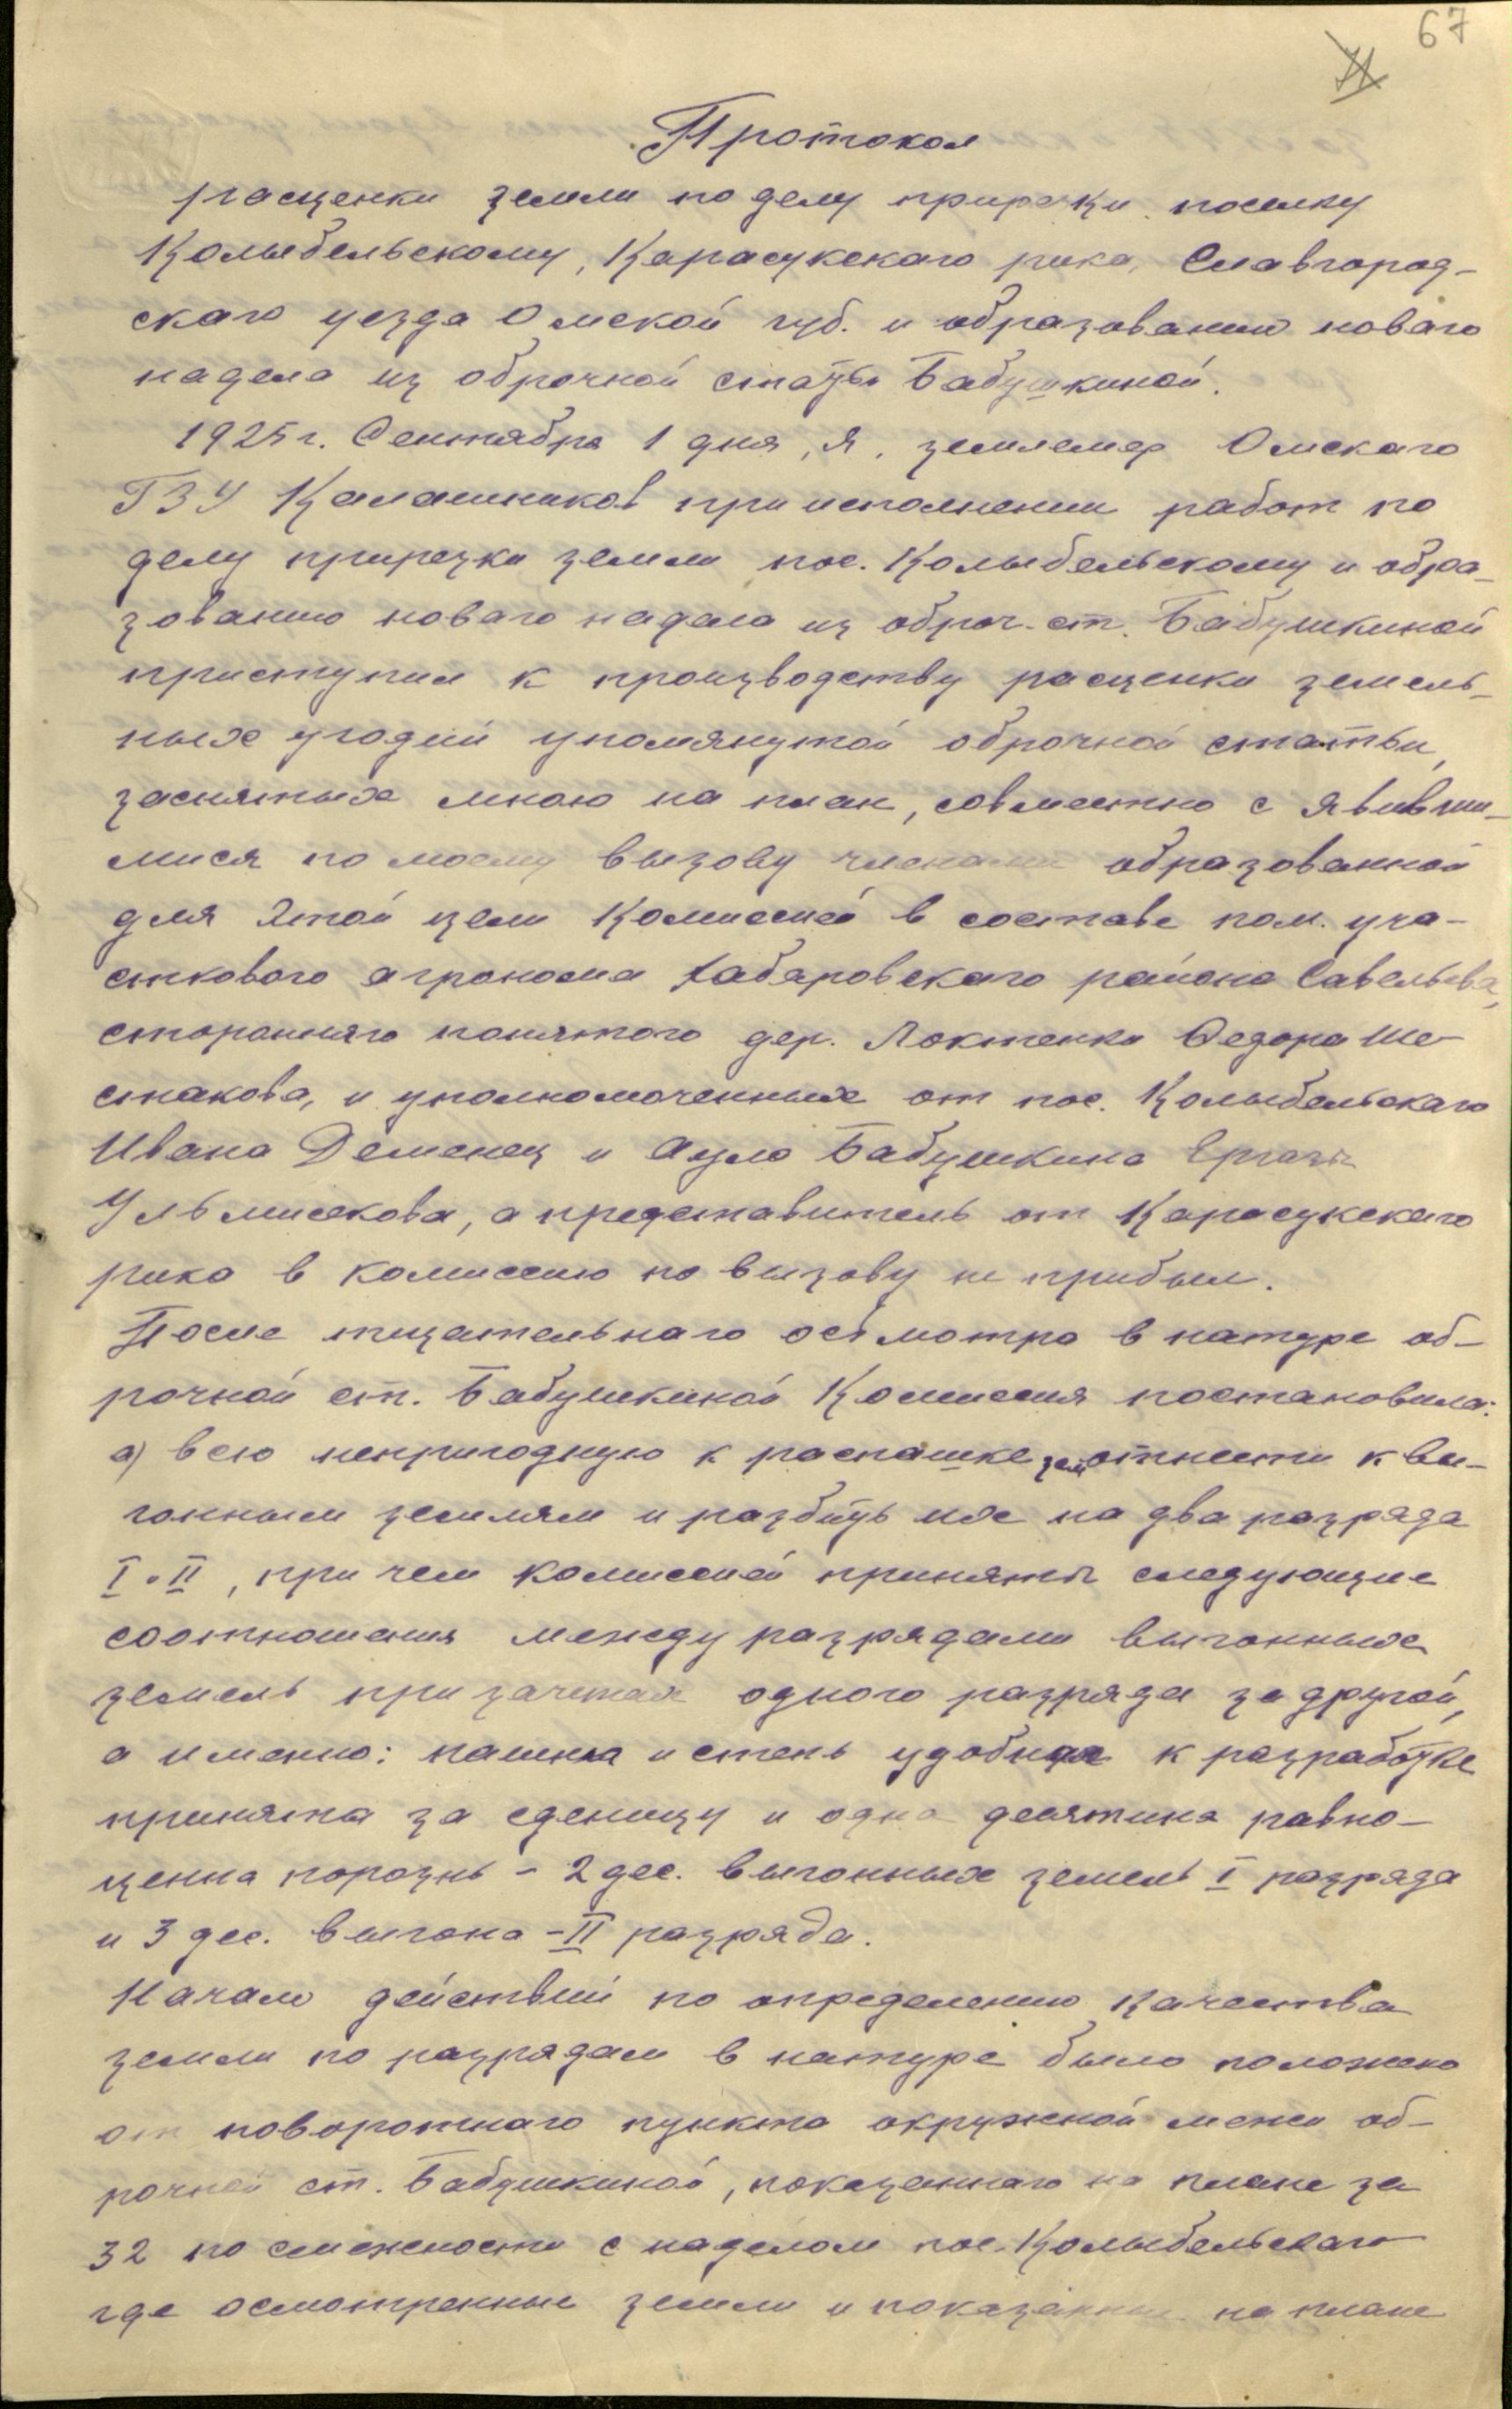 67
Протокол
расценки земли по делу прирезки поселку
Колыбельскому, Карасукскаго рика, Славгород-
скаго уезда Омской губ. и образованию новаго
надела из оброчной статьи Бабушкиной.
1925 г. Сентября 1 дня, я, землемер Омскаго
ГЗУ Калашников при исполнении работ по
делу прирезки земли пос. Колыбельскому и обра-
зованию новаго надела из оброч. ст. Бабушкиной
приступил к производству расценки земель-
ных угодий упомянутой оброчной статьи,
заснятых мною на план, совместно с явивши-
мися по моему вызову членами образованной
для этой цели Комиссией в составе пом. уча-
сткового агронома Хабаровскаго района Савельева,
сторонняго понятого дер. Локтенка Федора Ше-
стакова, и уполномоченных от пос. Колыбельскаго
Ивана Деменец и Аула Бабушкина
Ульмисекова, а представитель от Карасукскаго
рика в комиссию по вызову не прибыл.
После тщательнаго осмотра в натуре об-
рочной ст. Бабушкиной Комиссия постановила:
а) всю непригодную к распашке зем отнести к вы-
гонным землям и разбить их на два разряда
I и II, при чем комиссией приняты следующие
соотношения между разрядами выгонных
земель при зачетах одного разряда за другой,
а именно: пашня и степь удобная к разработке
принята за еденицу и одна десятина равно-
ценна порознь - 2 дес. выгонных земель I разряда
и 3 дес. выгона - II разряда.
Начало действий по определению качества
земли по разрядам в натуре было положено
от поворотнаго пункта окружной межи об-
рочной ст. Бабушкиной, показаннаго на плане за
32 по смежности с наделом пос. Колыбельскаго
где осмотренные земли и показанные на плане